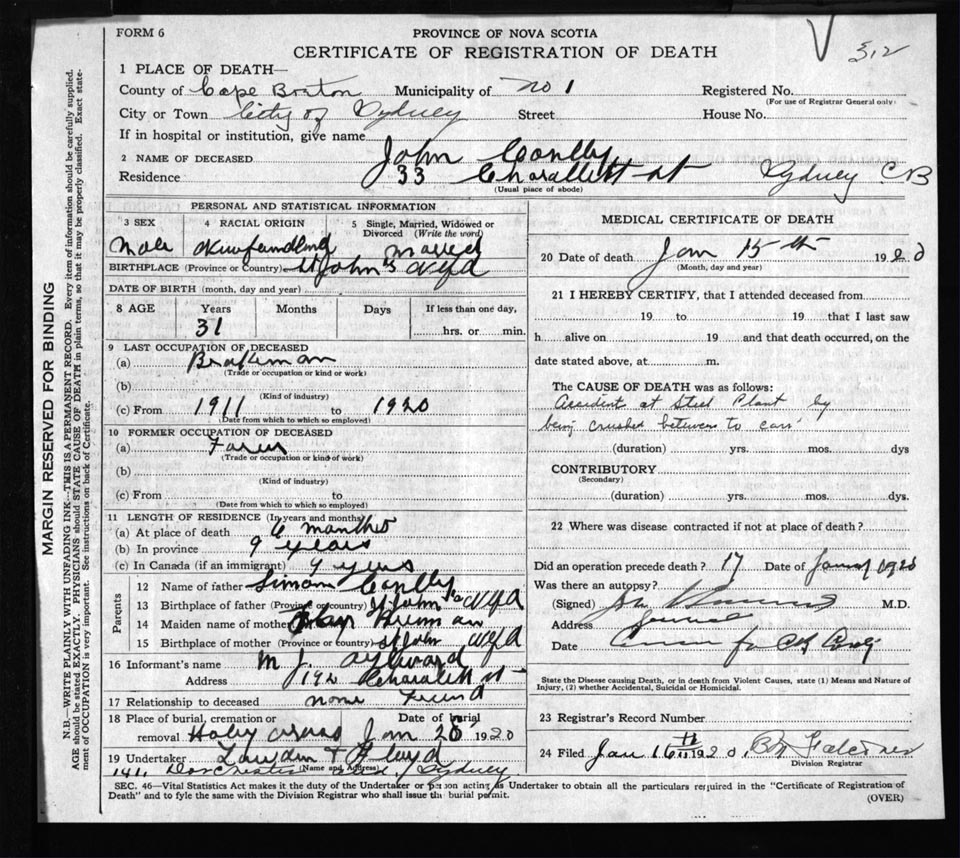 FORM 6
PROVINCE OF NOVA SCOTIA
CERTIFICATE OF REGISTRATION OF DEATH
312
1 PLACE OF DEATH—
County of Cape Breton Municipality of No 1 Registered No.
(For use of Registrar General only)
City or Town City of Sydney Street House No.
If in hospital or institution, give name
2 NAME OF DECEASED John Conlly
Residence 33 st Sydney CB
(Usual place of abode)
PERSONAL AND STATISTICAL INFORMATION
3 SEX 4 RACIAL ORIGIN 5 Single, Married, Widowed or Divorced (Write the word)
Male married
BIRTHPLACE (Province or Country) St John's Nfld
DATE OF BIRTH (month, day and year)
8 AGE Years Months Days If less than one day,
31 hrs. or min.
9 LAST OCCUPATION OF DECEASED
(a) Brakeman
(Trade or occupation or kind or work)
(b)
(Kind of industry)
(c) From 1911 to 1920
(Date from which to which so employed)
10 FORMER OCCUPATION OF DECEASED
(a)
(Trade or occupation or kind of work)
(b)
(Kind of industry)
(c) From to
(Date from which to which so employed)
11 LENGTH OF RESIDENCE (In years and months)
(a) At place of death 6 months
(b) In province 9 years
(c) In Canada (if an immigrant) 9 years
Parents
12 Name of father Simon Conlly
13 Birthplace of father (Province or country) St John's Nfld
14 Maiden name of mother
15 Birthplace of mother (Province or country) St John Nfld
16 Informant's name M J. Aylward
Address 192 st
17 Relationship to deceased none Friend
18 Place of burial, cremation or removal Holy Cross Date of burial Jan 1920
19 Undertaker & Floyd
(Name and Address)
Sydney
MEDICAL CERTIFICATE OF DEATH
20 Date of death Jan 15th 1920
(Month, day and year)
21 I HEREBY CERTIFY, that I attended deceased from
19 to 19 that I last saw
h alive on 19 and that death occurred, on the
date stated above, at m.
The CAUSE OF DEATH was as follows:
Accident at Steel Plant by
being crushed between to cars
(duration) yrs. mos. dys
CONTRIBUTORY
(Secondary)
(duration) yrs. mos. dys.
22 Where was disease contracted if not at place of death?
Did an operation precede death? 17 Date of 1920
Was there an autopsy?
(Signed) M.D.
Address
Date
State the Disease causing Death, or in death from Violent Causes, state (1) Means and Nature of
Injury, (2) whether Accidental, Suicidal or Homicidal.
23 Registrar's Record Number
24 Filed Jan 16th 1920
Division Registrar
SEC. 46—Vital Statistics Act makes it the duty of the Undertaker or person acting as Undertaker to obtain all the particulars required in the "Certificate of Registration of
Death" and to fyle the same with the Division Registrar who shall issue the burial permit.
(OVER)
MARGIN RESERVED FOR BINDING
N.B.—WRITE PLAINLY WITH UNFADING INK—THIS IS A PERMANENT RECORD. Every item of information should be carefully supplied.
AGE should be stated EXACTLY. PHYSICIANS should STATE CAUSE OF DEATH in plain terms, so that it may be properly classified. Exact state-
ment of OCCUPATION is very important. See instructions on back of Certificate.